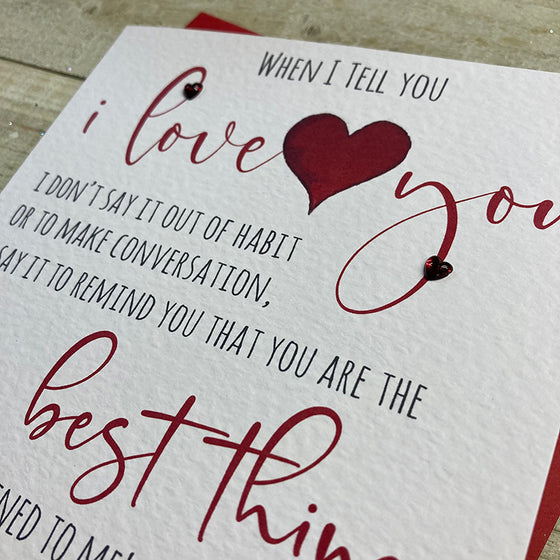 WHEN I TELL YOU
i love you
I DON'T SAY IT OUT OF HABIT
OR TO MAKE CONVERSATION,
SAY IT TO REMIND YOU THAT YOU ARE THE
best thin
ENED TO ME!